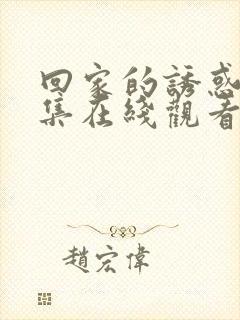 回家的誘惑
集在綫觀看
趙宏偉